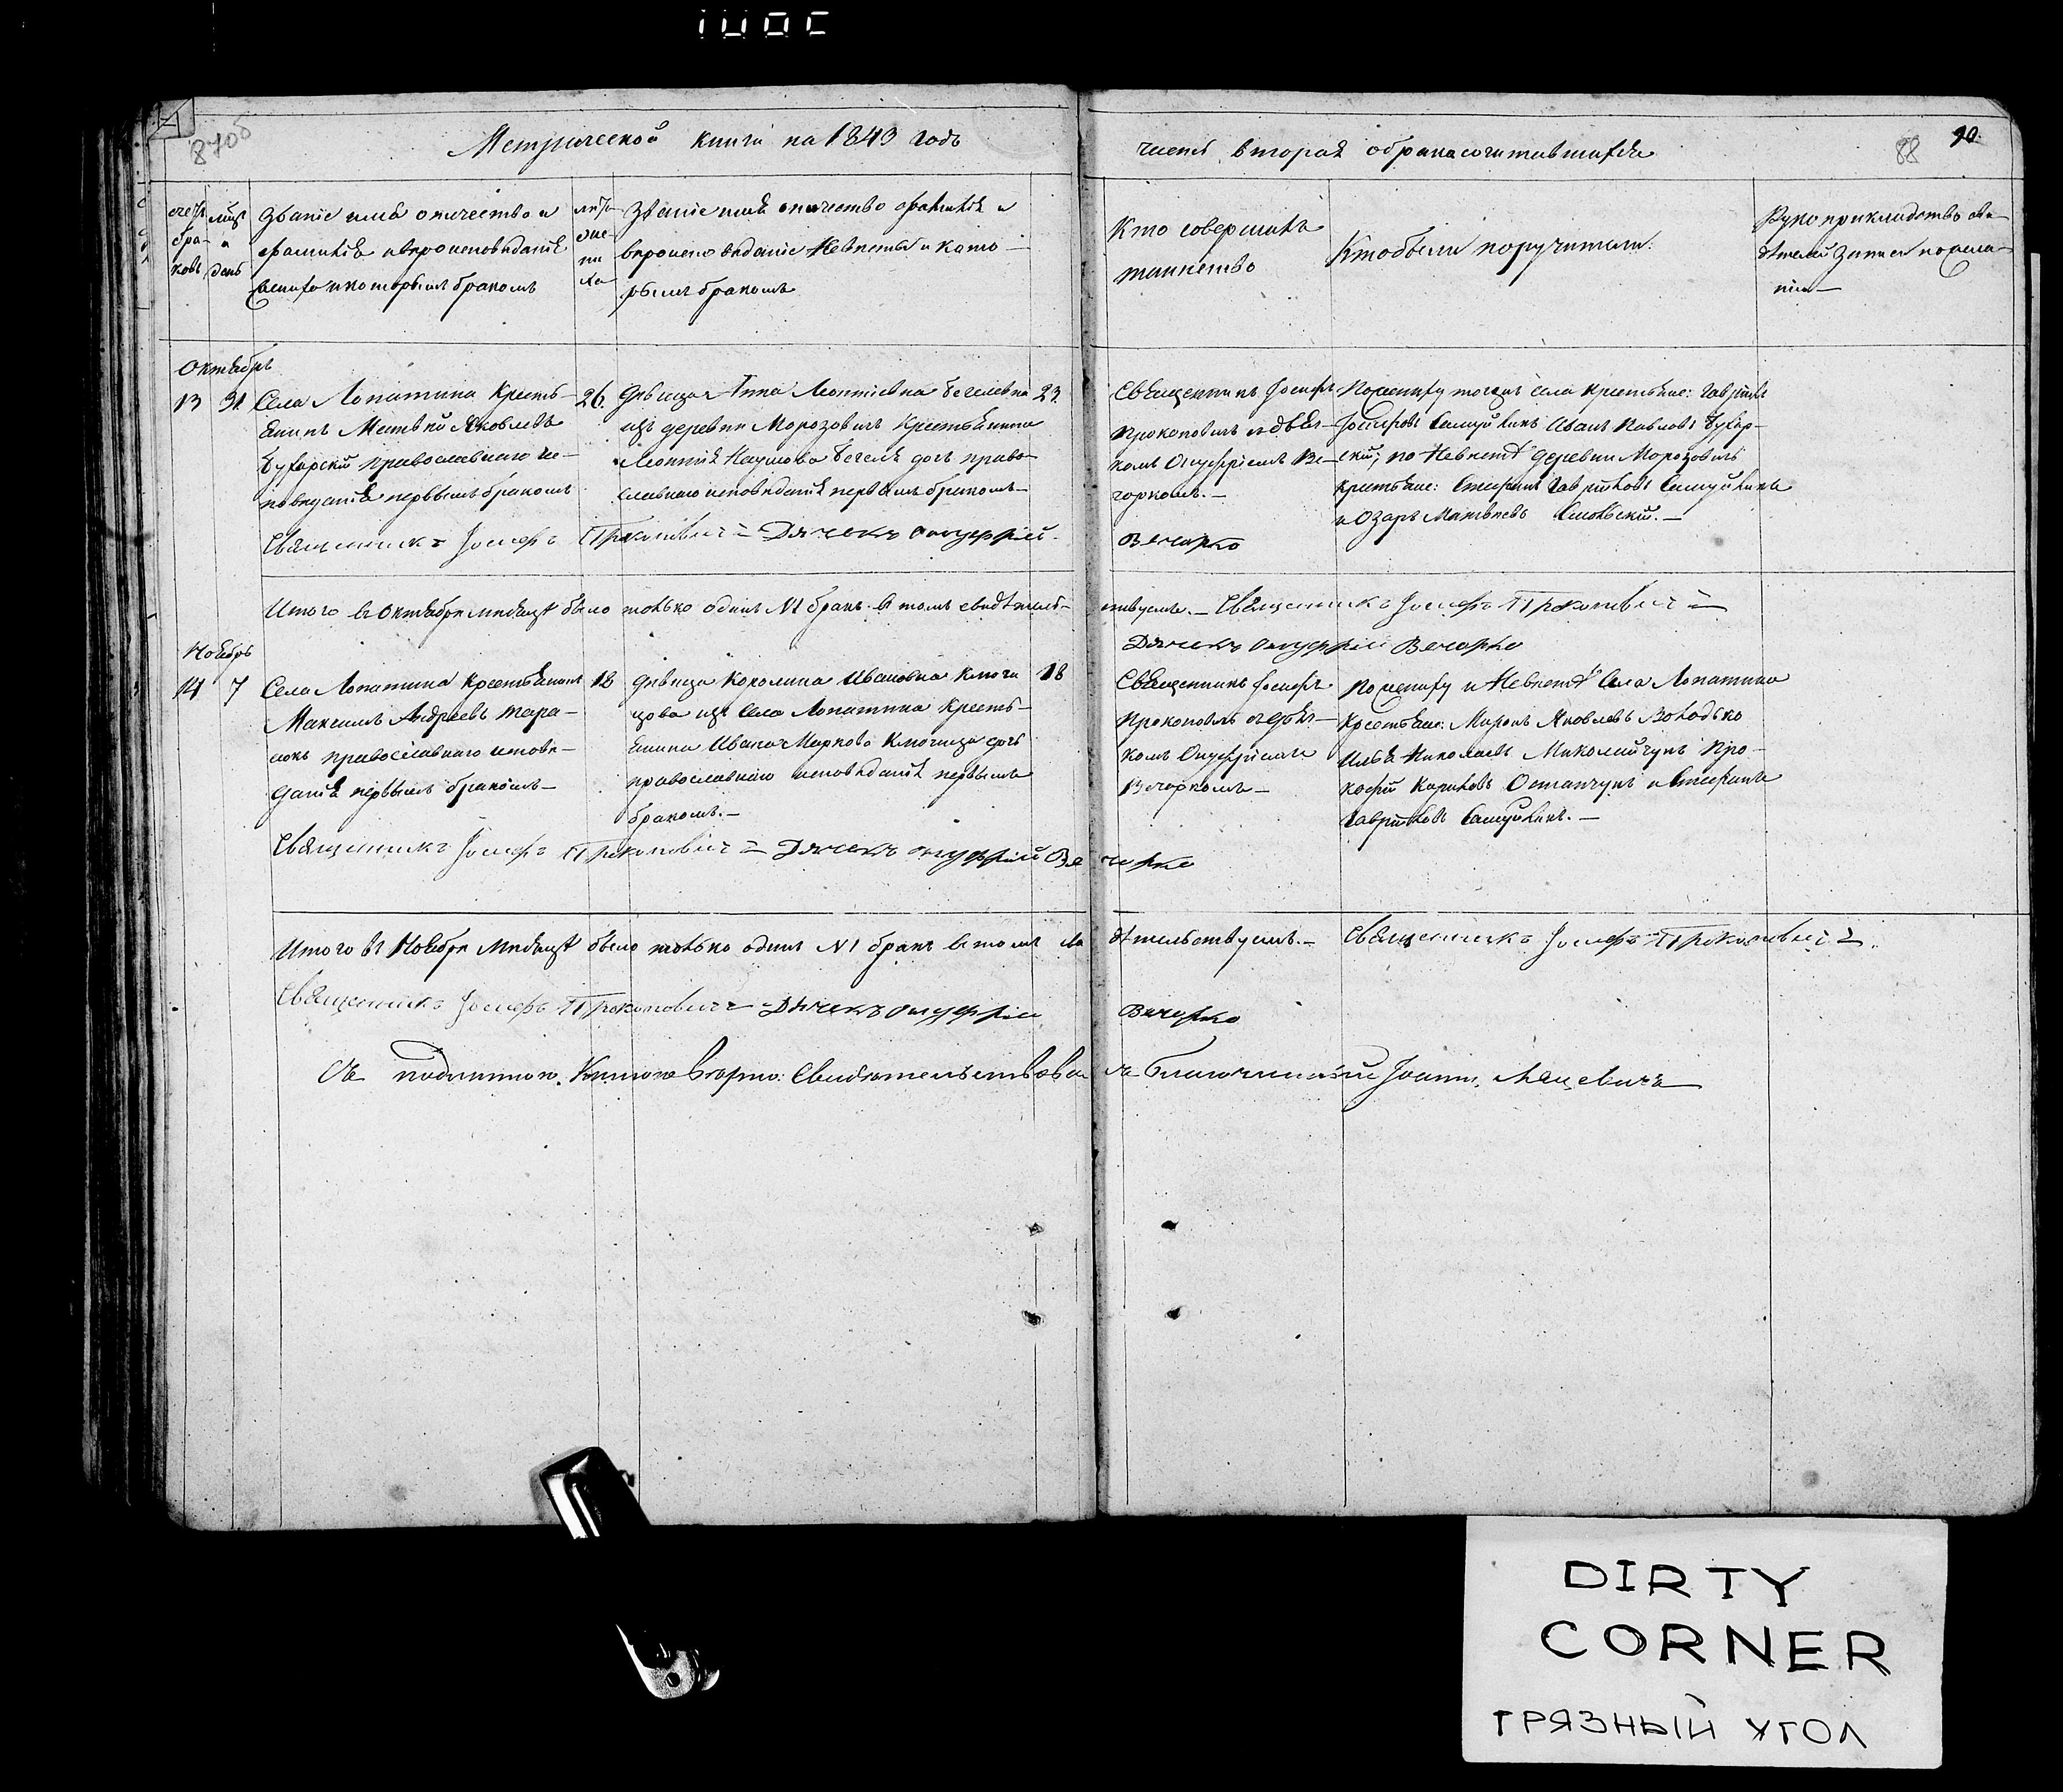 87об
Метрической книги на 1843 годъ
часть вторая о бракасочитавшихся
88 90.
счетъ браковъ
мцъ и день
Званіе имя отчество и
фамилія и вероисповеданіе
жениха и которымъ бракомъ
Званіе имя отчество фамилія и
вероисповеданіе Невесты и кото-
рымъ бракомъ
Кто совершилъ
таинство
Кто были поручители.
Рукоприкладство сви-
детелей записи по жела-
нію
Октябрь
13 31 Села Лопатина Кресть-
янинъ Матвей Яковлевъ
православнаго ис-
поведанія первымъ бракомъ
26
девица Анна Леонтіевна
изъ деревни Морозовичъ Крестьянина
Леонтія Наумова дочь право-
славнаго исповеданія первымъ бракомъ
23
Священникъ Іосифъ
Прокоповичъ з дьяч-
комъ Онуфріемъ Ве-
чоркомъ.
По жениху тогожъ села крестьяне: Гаврилъ
Іосифовъ Самуйликъ Иванъ Павловъ
по Невесте деревни Морозовичъ
крестьяне: Стефанъ Гавриловъ Самуйликъ
и Озаръ Матвеевъ
Священникъ Іосифъ Прокоповичъ Дячекъ Онуфрій Вечорко
Итого в Октябре месяце было только одинъ №1 бракъ. в томъ свидетель-
ствуемъ. Священникъ Іосифъ Прокоповичъ
Дячекъ Онуфрій Вечорко
Ноябрь
14 7 Села Лопатина Крестьянинъ
Максимъ Андреевъ Тара-
православнаго испове-
данія первымъ бракомъ
18
девица Королина Ивановна Клюги
цова изъ Села Лопатина Кресть-
янина Ивана Маркова дочь
православнаго исповеданія первымъ
бракомъ.
18
Священникъ Іосифъ
Прокоповичъ з дьяч-
комъ Онуфріемъ
Вечоркомъ
По жениху и Невесте Села Лопатина
Крестьяне: Миронъ Яковлевъ Володько
Илья Николаевъ Миколайчукъ Про-
кофій Кириловъ Остапчукъ и Стефанъ
Гавриловъ Самуйликъ.
Священникъ Іосифъ Прокоповичъ Дячекъ Онуфрій Вечорко
Итого въ Ноябре месяце было только одинъ №1 бракъ в томъ сви
детельствуемъ. Священникъ Іосифъ Прокоповичъ
Священникъ Іосифъ Прокоповичъ Дячекъ Онуфрій Вечорко
Съ подлинною Книгою верно: Свидетельствовалъ Благочинный Іоаннъ
DIRTY
CORNER
ГРЯЗНЫЙ УГОЛ